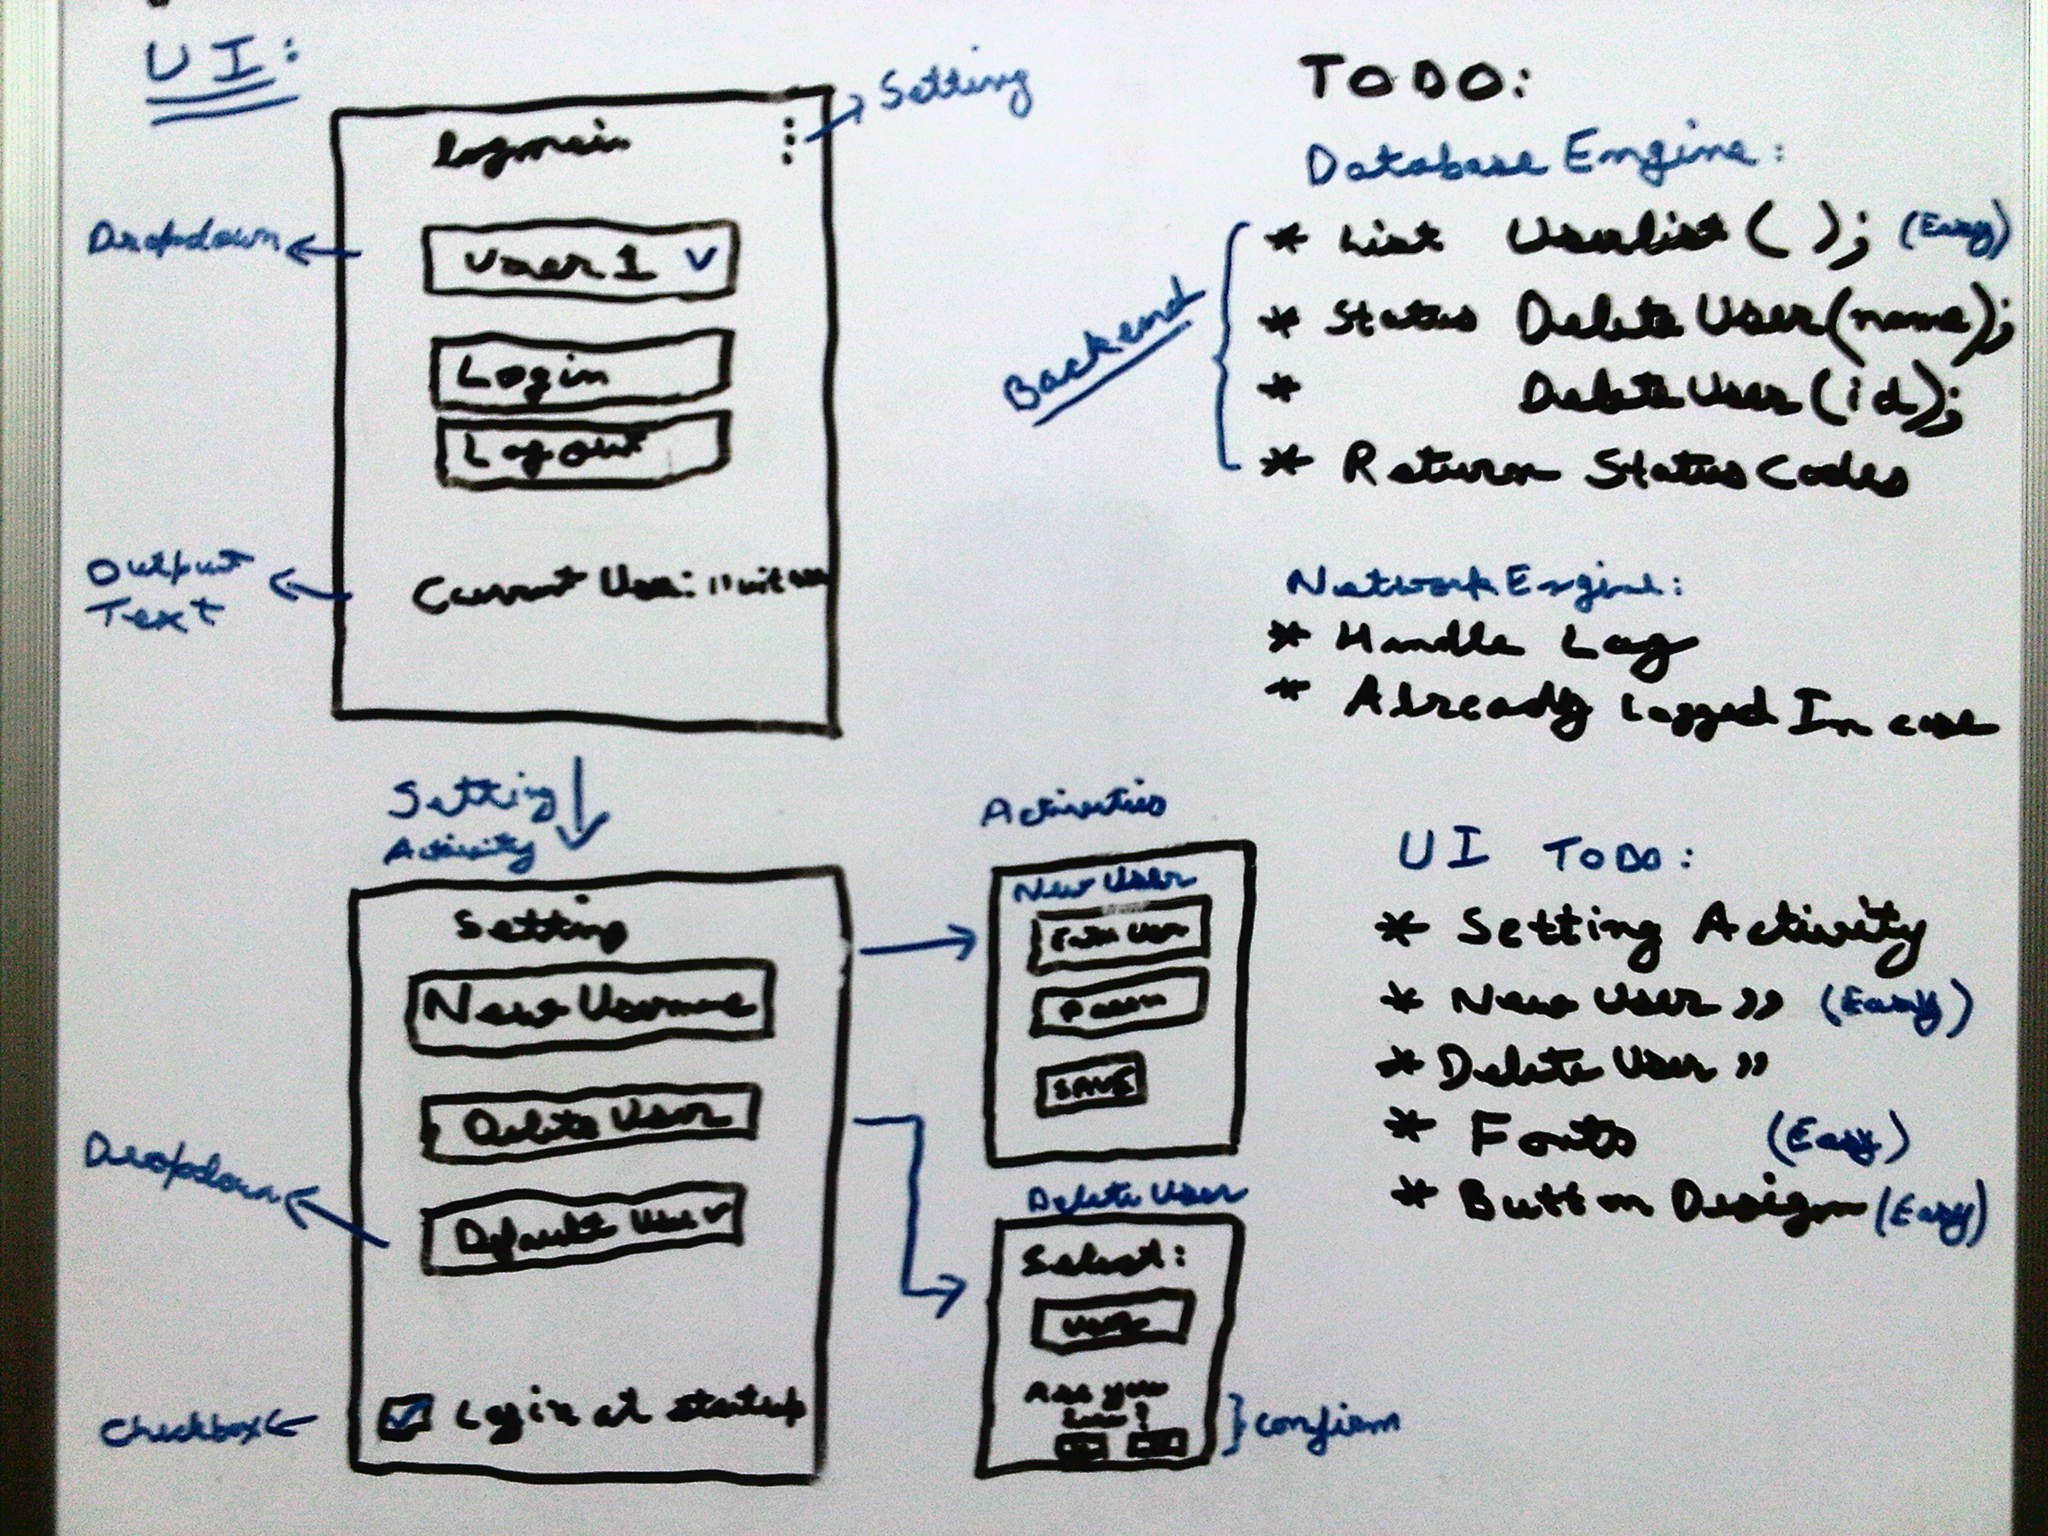 UI:
Setting
logmein
Dropdown
User 1 v
Login
Logout
Output
Text
Current User:
Setting
Activity
Setting
New Username
Delete User
Dropdown
Default User v
Checkbox
Login at startup
Activities
New User
SAVE
Delete User
Select:
User
Are you
Sure?
Confirm
TODO:
Database Engine:
Backend
* List Userlist ( ); (Easy)
* Status DeleteUser(name);
* DeleteUser(id);
* Return Status Codes
Network Engine:
* Handle Lag
* Already Logged In case
UI TODO:
* Setting Activity
* New User " (Easy)
* Delete User "
* Fonts (Easy)
* Button Design (Easy)